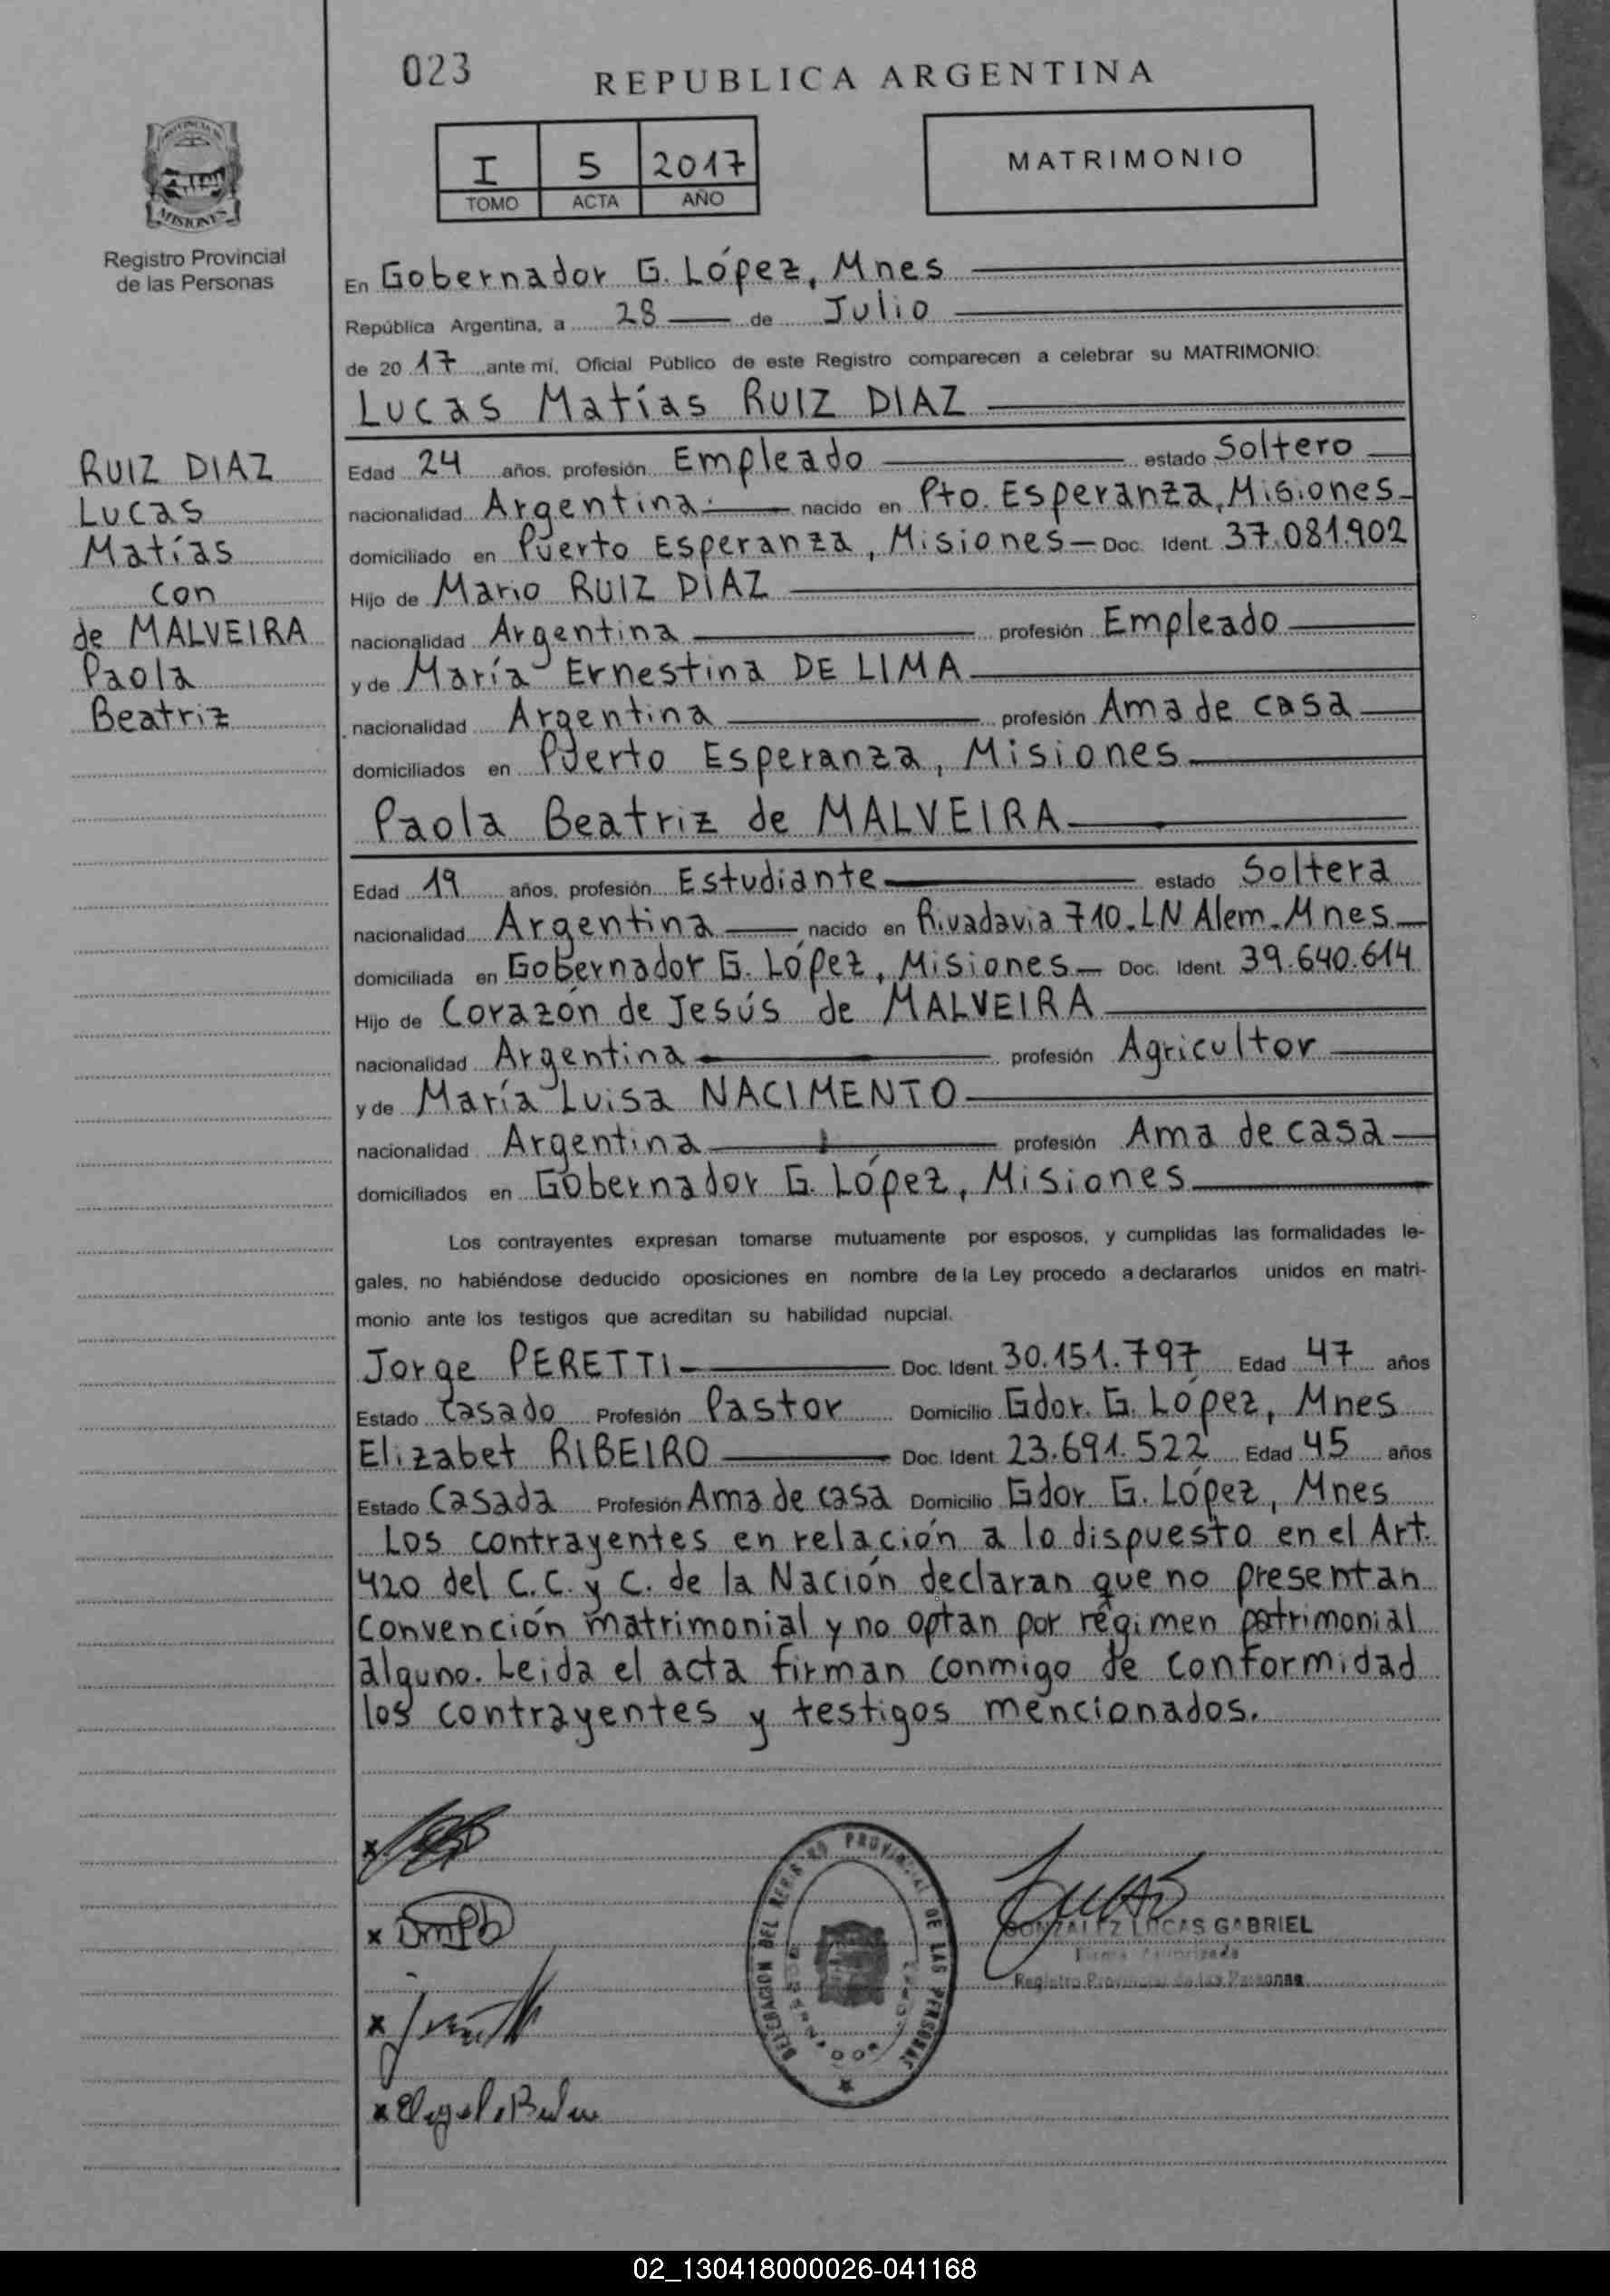 023
REPUBLICA ARGENTINA
I 5 2017
TOMO ACTA AÑO
MATRIMONIO
PROVINCIA DE
MISIONES
Registro Provincial
de las Personas
RUIZ DIAZ
Lucas
Matías
con
de MALVEIRA
Paola
Beatriz
En Gobernador G. López, Mnes
República Argentina, a 28 de Julio
de 2017 ante mí, Oficial Público de este Registro comparecen a celebrar su MATRIMONIO:
Lucas Matías RUIZ DIAZ
Edad 24 años, profesión Empleado estado Soltero
nacionalidad Argentina. nacido en Pto. Esperanza, Misiones
domiciliado en Puerto Esperanza, Misiones Doc. Ident. 37.081.902
Hijo de Mario RUIZ DIAZ
nacionalidad Argentina profesión Empleado
y de María Ernestina DE LIMA
nacionalidad Argentina profesión Ama de casa
domiciliados en Puerto Esperanza, Misiones
Paola Beatriz de MALVEIRA
Edad 19 años, profesión Estudiante estado Soltera
nacionalidad Argentina nacido en Rivadavia 710-LN Alem-Mnes
domiciliada en Gobernador G. López, Misiones Doc. Ident. 39.640.614
Hijo de Corazón de Jesús de MALVEIRA
nacionalidad Argentina profesión Agricultor
y de María Luisa NACIMENTO
nacionalidad Argentina profesión Ama de casa
domiciliados en Gobernador G. López, Misiones
Los contrayentes expresan tomarse mutuamente por esposos, y cumplidas las formalidades le-
gales, no habiéndose deducido oposiciones en nombre de la Ley procedo a declararlos unidos en matri-
monio ante los testigos que acreditan su habilidad nupcial.
Jorge PERETTI Doc. Ident. 30.151.797 Edad 47 años
Estado Casado Profesión Pastor Domicilio Gdor. G. López, Mnes
Elizabet RIBEIRO Doc. Ident. 23.691.522 Edad 45 años
Estado Casada Profesión Ama de casa Domicilio Gdor G. López, Mnes
Los contrayentes en relación a lo dispuesto en el Art.
420 del C.C. y C. de la Nación declaran que no presentan
convención matrimonial y no optan por régimen patrimonial
alguno. Leida el acta firman conmigo de conformidad
los contrayentes y testigos mencionados.
x
x
x
x
DELEGACION DEL REGISTRO PROVINCIAL DE LAS PERSONAS
GONZALEZ LUCAS GABRIEL
Firma Autorizada
Registro Provincial de las Personas
02_130418000026-041168